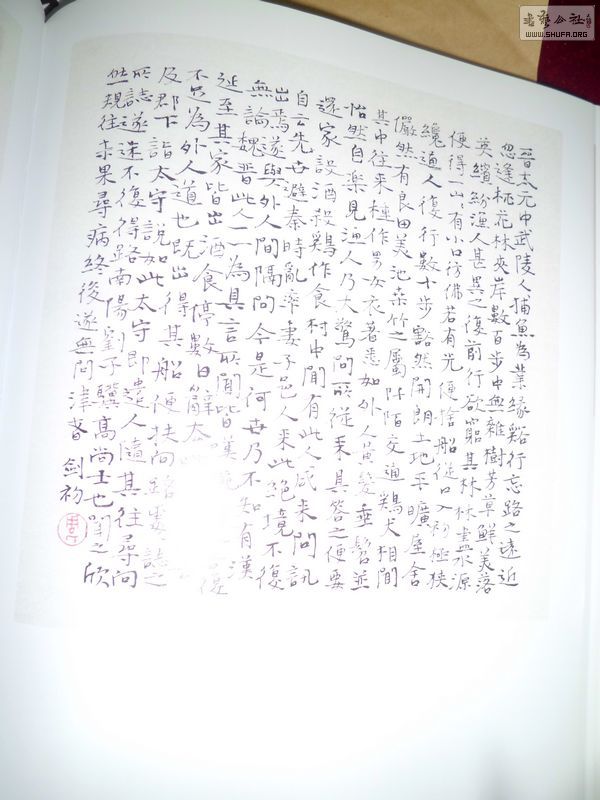 晉太元中武陵人捕魚為業緣谿行忘路之遠近
忽逢桃花林夾岸數百步中無雜樹芳草鮮美落
英繽紛漁人甚異之復前行欲窮其林林盡水源
便得一山有小口彷彿若有光便捨船從口入初極狹
纔通人復行數十步豁然開朗土地平曠屋舍
儼然有良田美池桑竹之屬阡陌交通鷄犬相聞
其中往來種作男女衣著悉如外人黃髮垂髫並
怡然自樂見漁人乃大驚問所從來具答之便要
還家設酒殺鷄作食村中聞有此人咸來問訊
自云先世避秦時亂率妻子邑人來此絕境不復
出焉遂與外人間隔問今是何世乃不知有漢
無論魏晉此人一一為具言所聞皆嘆
復
延至其家皆出酒食停數日辭去此
不足為外人道也既出得其船便扶向路處處誌之
及郡下詣太守說如此太守即遣人隨其往尋向
所誌遂迷不復得路南陽劉子驥高尚士也聞之欣
然規往未果尋病終後遂無問津者 劍初
書法公社
WWW.SHUFA.ORG